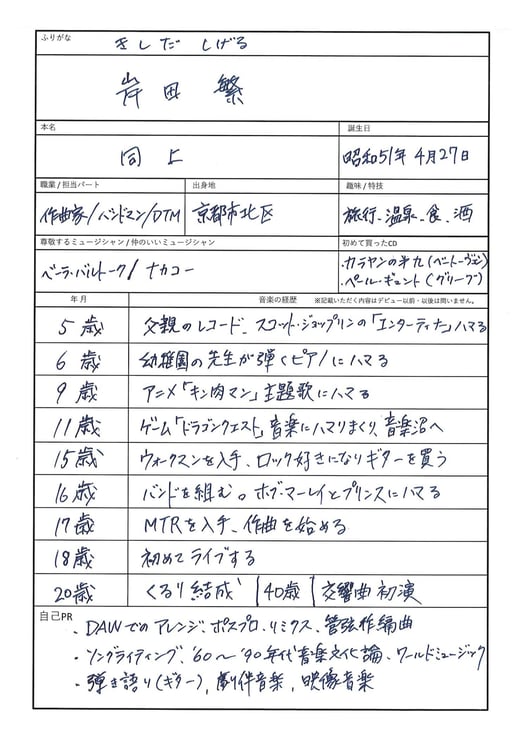 ふりがな
きしだ しげる
岸田 繁
本名 誕生日
同上 昭和51年4月27日
職業/担当パート 出身地 趣味/特技
作曲家/バンドマン/DTM 京都市北区 旅行、温泉、食、酒
尊敬するミュージシャン/仲のいいミュージシャン 初めて買ったCD
ベーラ・バルトーク/ナカコー ・カラヤンの第九(ベートーヴェン)
・ペール・ギュント(グリーグ)
年月 音楽の経歴 ※記載いただく内容はデビュー以前・以後は問いません。
5歳 父親のレコード、スコット・ジョップリンの「エンターティナ」ハマる
6歳 幼稚園の先生が弾くピアノにハマる
9歳 アニメ「キン肉マン」主題歌にハマる
11歳 ゲーム「ドラゴンクエスト」音楽にハマりまくり、音楽沼へ
15歳 ウォークマンを入手、ロック好きになりギターを買う
16歳 バンドを組む。ボブ・マーレイとプリンスにハマる
17歳 MTRを入手、作曲を始める
18歳 初めてライブする
20歳 くるり結成 40歳 交響曲初演
自己PR
・DAWでのアレンジ、ポスプロ、リミクス、管弦作編曲
・ソングライティング、'60〜'90年代音楽文化論、ワールドミュージック
・弾き語り(ギター)、劇伴音楽、映像音楽